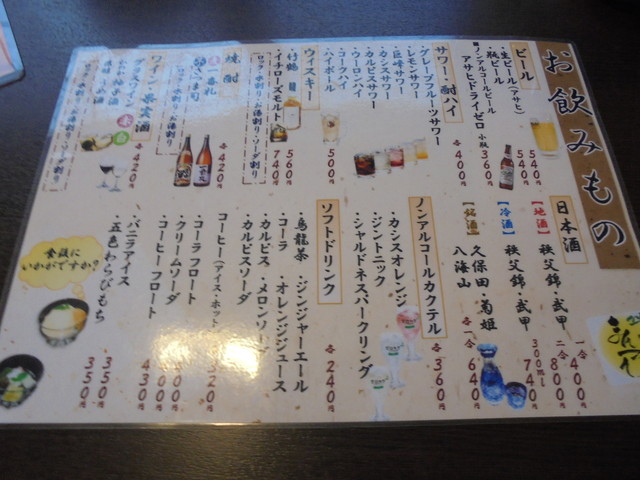 お飲みもの
ビール
・生ビール(アサヒ) 540円
・瓶ビール 540円
■ノンアルコールビール
アサヒドライゼロ 小瓶 360円
サワー・酎ハイ
・グレープフルーツサワー
・レモンサワー
・巨峰サワー
・カシスサワー
・カルピスサワー
・ウーロンハイ
・コークハイ
・ハイボール
各400円
500円
ウィスキー
・竹鶴 560円
・イチローズモルト 740円
ロック・水割り・お湯割り・ソーダ割り
焼酎
各420円
ロック・水割り・お湯割り・ソーダ割り
ワイン・果実酒
グラスワイン 赤 白
各420円
日本酒
【地酒】 秩父錦・武甲
一合 400円
二合 800円
【冷酒】 秩父錦・武甲
300ml 740円
【銘酒】 久保田・菊姫
八海山
各一合 640円
ノンアルコールカクテル
・カシスオレンジ
・ジントニック
・シャルドネスパークリング
各360円
ソフトドリンク
・烏龍茶 ・ジンジャーエール
・コーラ ・オレンジジュース
・カルピス ・メロンソーダ
・カルピスソーダ
各240円
コーヒー(アイス・ホット) 320円
・コーラフロート
・クリームソーダ
・コーヒーフロート 430円
・バニラアイス 350円
・五色わらびもち 350円
食後に
いかがですか?